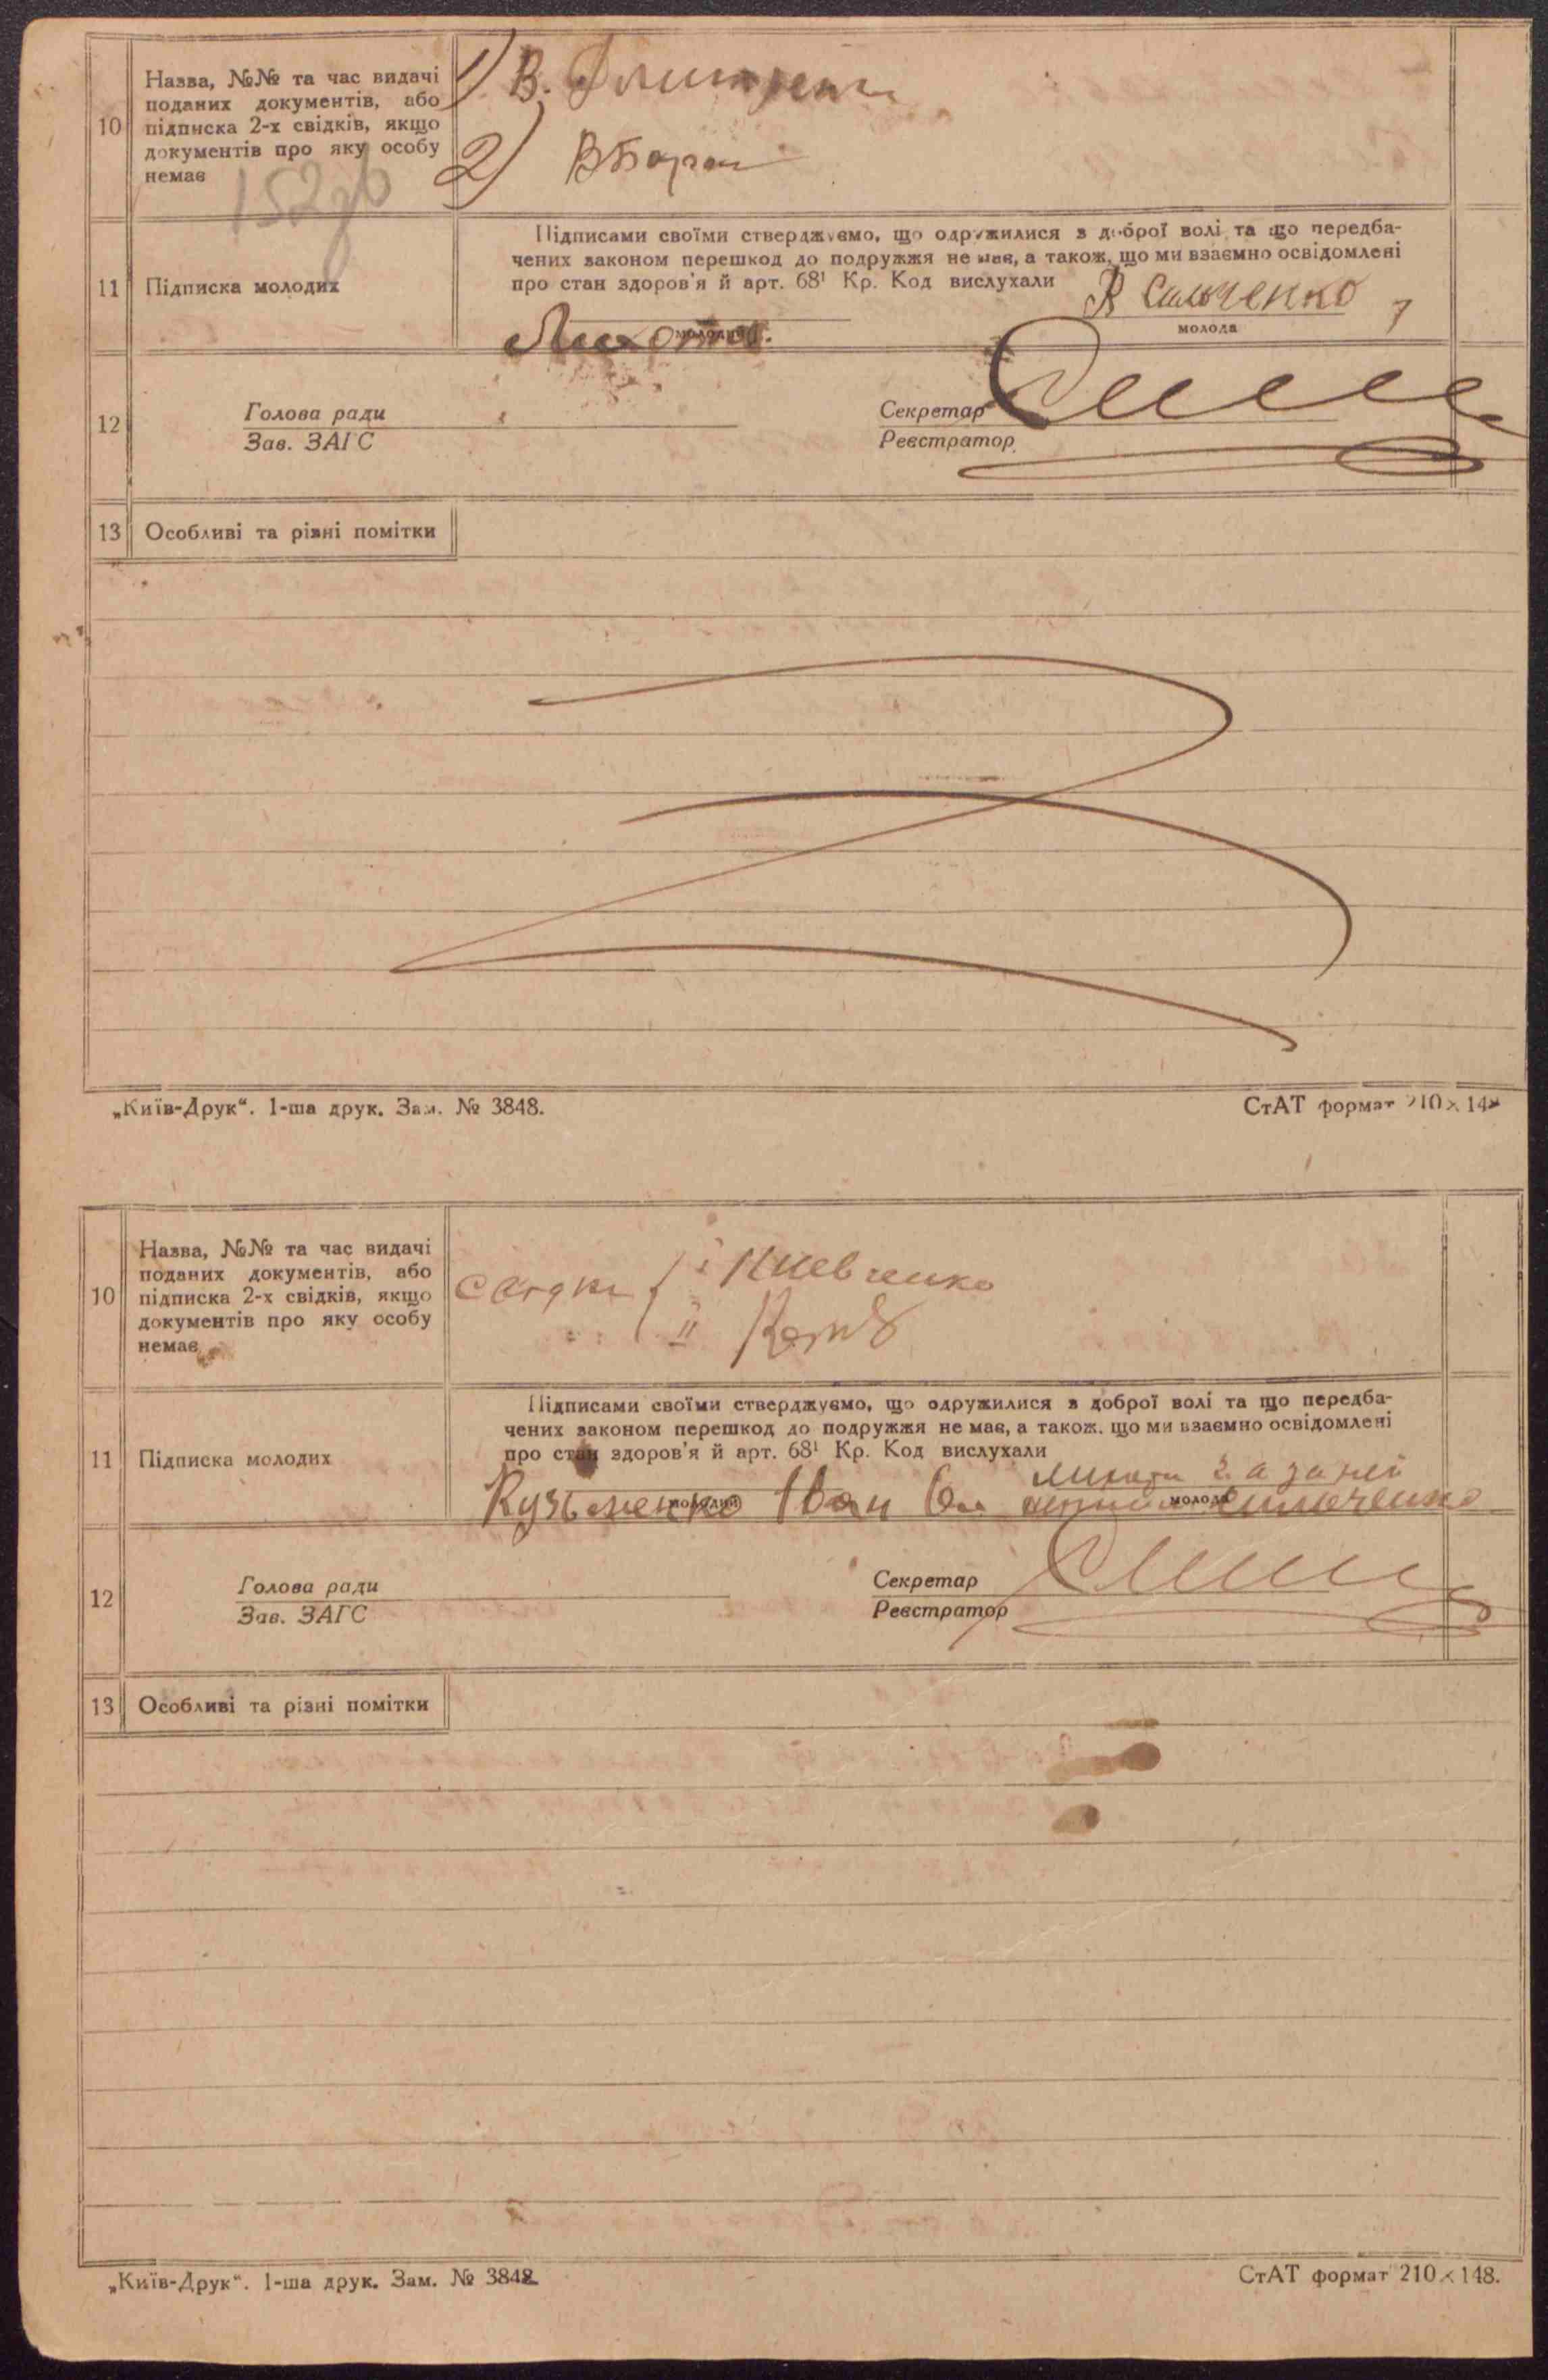 10
Назва, №№ та час видачі
поданих документів, або
підписка 2-х свідків, якщо
документів про яку особу
немає
1) В. Дмитренко
2) В Баран
152зв
11
Підписка молодих
Підписами своїми стверджуємо, що одружилися з доброї волі та що передба-
чених законом перешкод до подружжя не має, а також, що ми взаємно освідомлені
про стан здоров'я й арт. 68¹ Кр. Код вислухали
Сильченко
молодий
молода
12
Голова ради
Зав. ЗАГС
Секретар
Реєстратор
13
Особливі та різні помітки
„Київ-Друк“. 1-ша друк. Зам. № 3848.
СтАТ формат 210×148
10
Назва, №№ та час видачі
поданих документів, або
підписка 2-х свідків, якщо
документів про яку особу
немає
свідки
I Киевченко
II
11
Підписка молодих
Підписами своїми стверджуємо, що одружилися з доброї волі та що передба-
чених законом перешкод до подружжя не має, а також, що ми взаємно освідомлені
про стан здоров'я й арт. 68¹ Кр. Код вислухали
за неї
Кузьменко Іван
Сильченко
молодий
молода
12
Голова ради
Зав. ЗАГС
Секретар
Реєстратор
13
Особливі та різні помітки
„Київ-Друк“. 1-ша друк. Зам. № 3848
СтАТ формат 210×148.